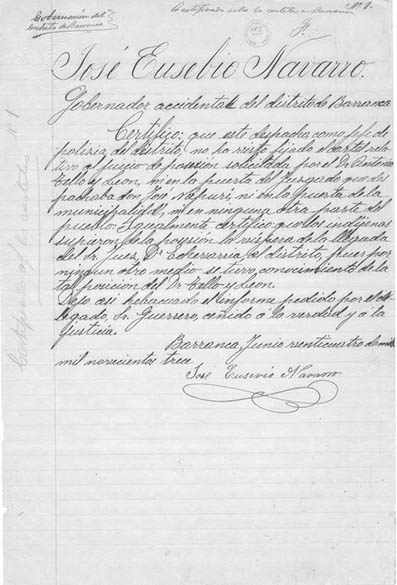 Gobernación del
distrito de Barranca
Certificado sobre los carteles en Barranca
Nº 1.
José Eusebio Navarro.
Gobernador accidental del distrito de Barranca
Certifico: que este despacho como jefe de
policia del distrito, no ha visto fijado el cartel rela-
tivo al juicio de posesión solicitada por el Dr. Antonio
Tello y Leon, ni en la puerta del Juzgado que des-
pachaba don José Napuri, ni en la puerta de la
municipalidad, ni en ninguna otra parte del
pueblo: Igualmente certifico que los indígenas
supieron de la posesión la víspera de la llegada
del Sr. Juez, Dr. Echevarria al distrito, pues por
ningun otro medio se tuvo conocimiento de la
tal posición del Dr. Tello y Leon.
Dejo así evacuado el informe pedido por el de-
legado, Sr. Guerrero, ceñido a la verdad y a la
justicia.
Barranca, Junio veinticuatro de
mil novecientos trece
José Eusevio Navarro
Certificado de los carteles Nº 1